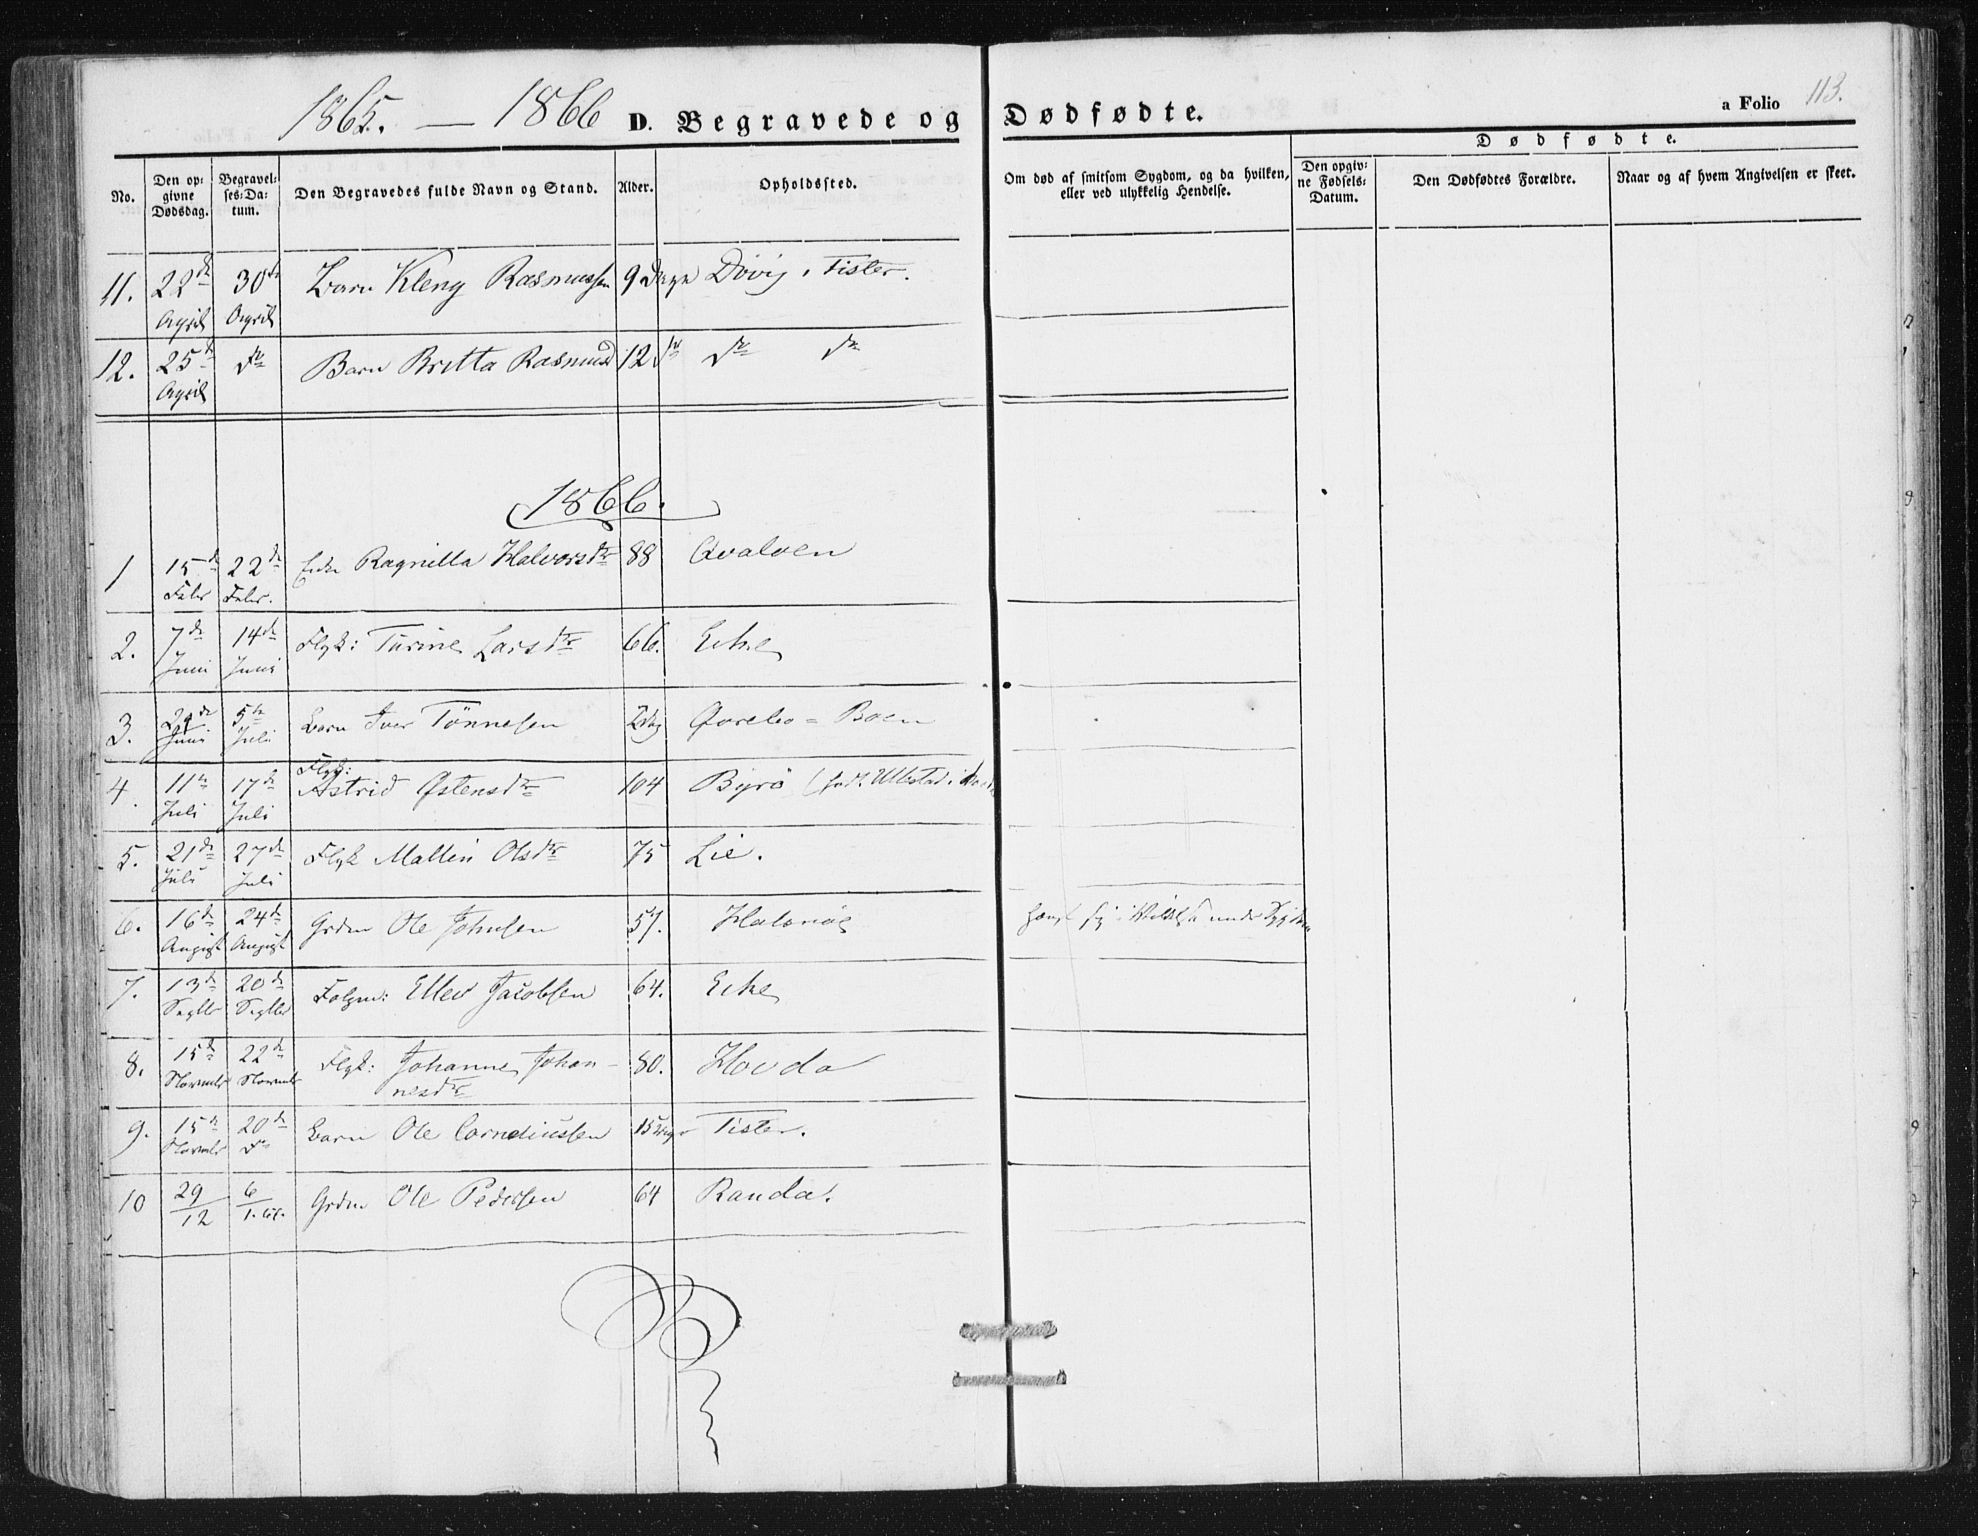 1865. — 1866 D. Begravede og Dødfødte. a Folio 113.
No. Den opgivne Dødsdag. Begravelses-Datum. Den Begravedes fulde Navn og Stand. Alder. Opholdssted. Om død af smitsom Sygdom, og da hvilken, eller ved ulykkelig Hendelse. Dødfødte. Den opgivne Fødsels-Datum. Den Dødfødtes Forældre. Naar og af hvem Angivelsen er skeet.
11. 22de April 30te April Barn Kleng Rasmussen 9 Dage Døvig, Tister.
12. 25de April do Barn Britta Rasmusd 12 do do do
1866.
1 15de Febr 22de Febr. Enke Ragnilla Halvorsdtr 88 Qvaloen
2. 7de Juni 14de Juni Flgk: Turine Larsdtr 66. Eike
3. 29de Juni 5te Juli Barn Iver Tönnesen 2 dag Qvrebo = Boen
4. 11te Juli 17de Juli Flgk: Astrid Østensdtr 104 Byrö (født Ullestad i
5. 21de Juli 27de Juli Flgk Malleni Olsdtr 75 Lie.
6. 16de August 24de August Grdm Ole Johnsen 57. Halsnöe
7. 13de Septbr 20de Septbr Folgm: Ellev Jacobsen 64. Eike
8. 15de Novembr 22de Novembr Flgk: Johanne Johannesdtr 80. Hovda
9. 15de Novembr 20de do Barn Ole Corneliussen 15 Dage Tister.
10 29/12 6/1. 67. Grdm Ole Pedersen 64 Randa.